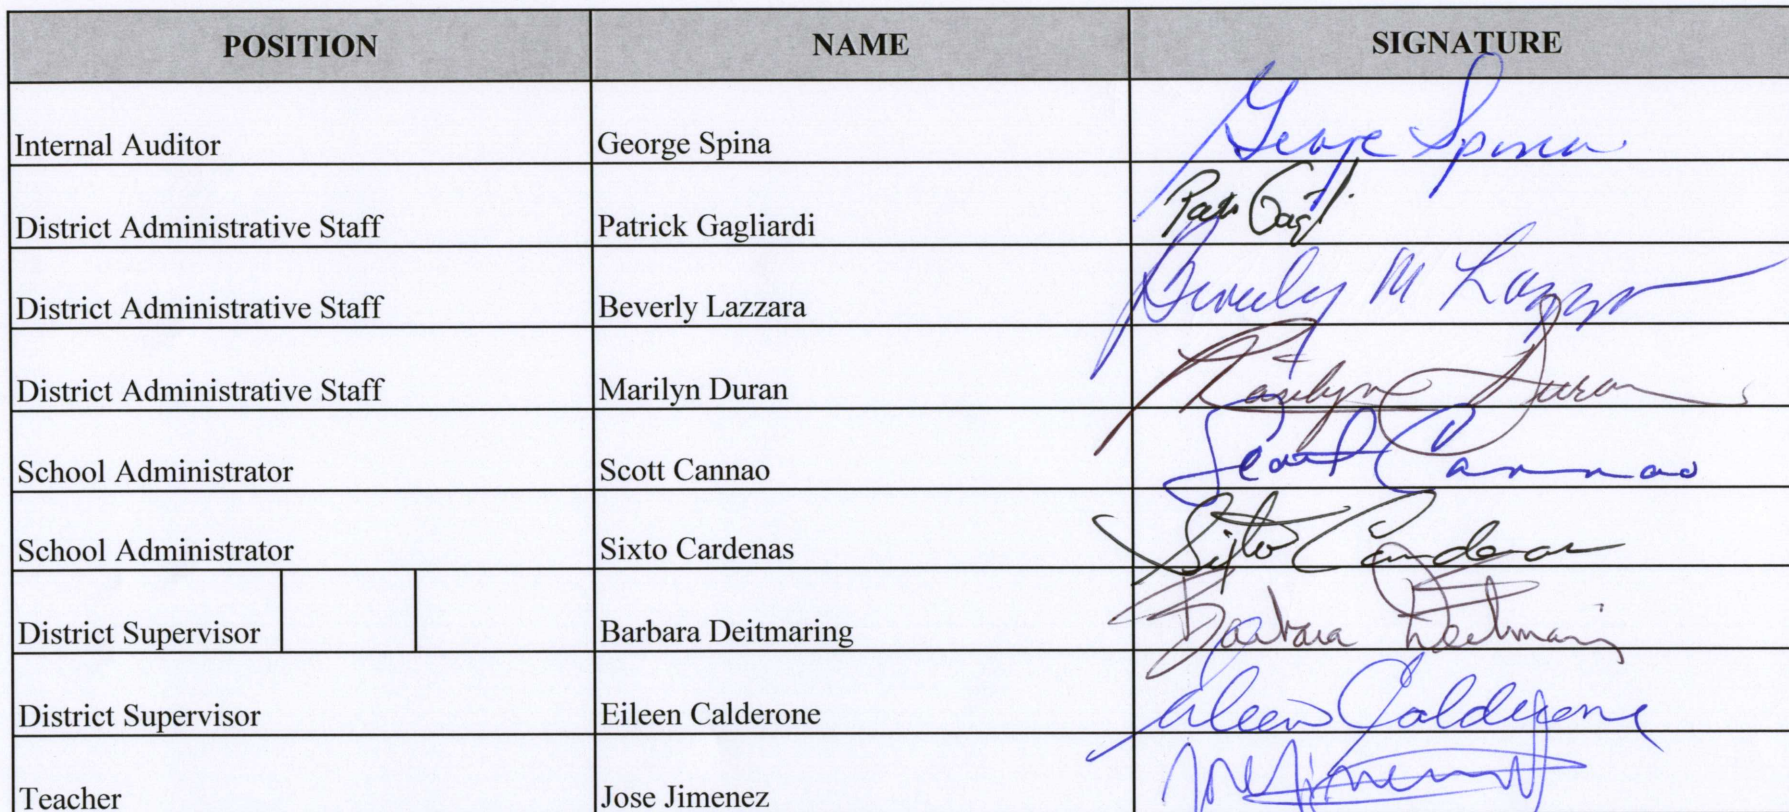 POSITION NAME SIGNATURE
Internal Auditor George Spina George Spina
District Administrative Staff Patrick Gagliardi Pat Gagl
District Administrative Staff Beverly Lazzara Beverly M Lazzara
District Administrative Staff Marilyn Duran Marilyn Duran
School Administrator Scott Cannao Scott Cannao
School Administrator Sixto Cardenas Sixto Cardenas
District Supervisor Barbara Deitmaring Barbara Deitmaring
District Supervisor Eileen Calderone Eileen Calderone
Teacher Jose Jimenez Jose Jimenez